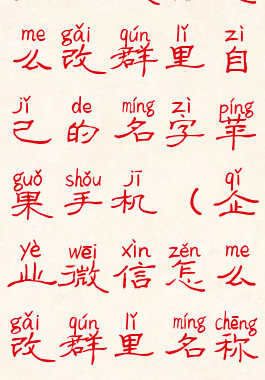 me gǎi qún lǐ zì
么改群里自
jǐ de míng zì píng
己的名字苹
guǒ shǒu jī qǐ
果手机（企
yè wēi xìn zěn me
业微信怎么
gǎi qún lǐ míng chēng
改群里名称